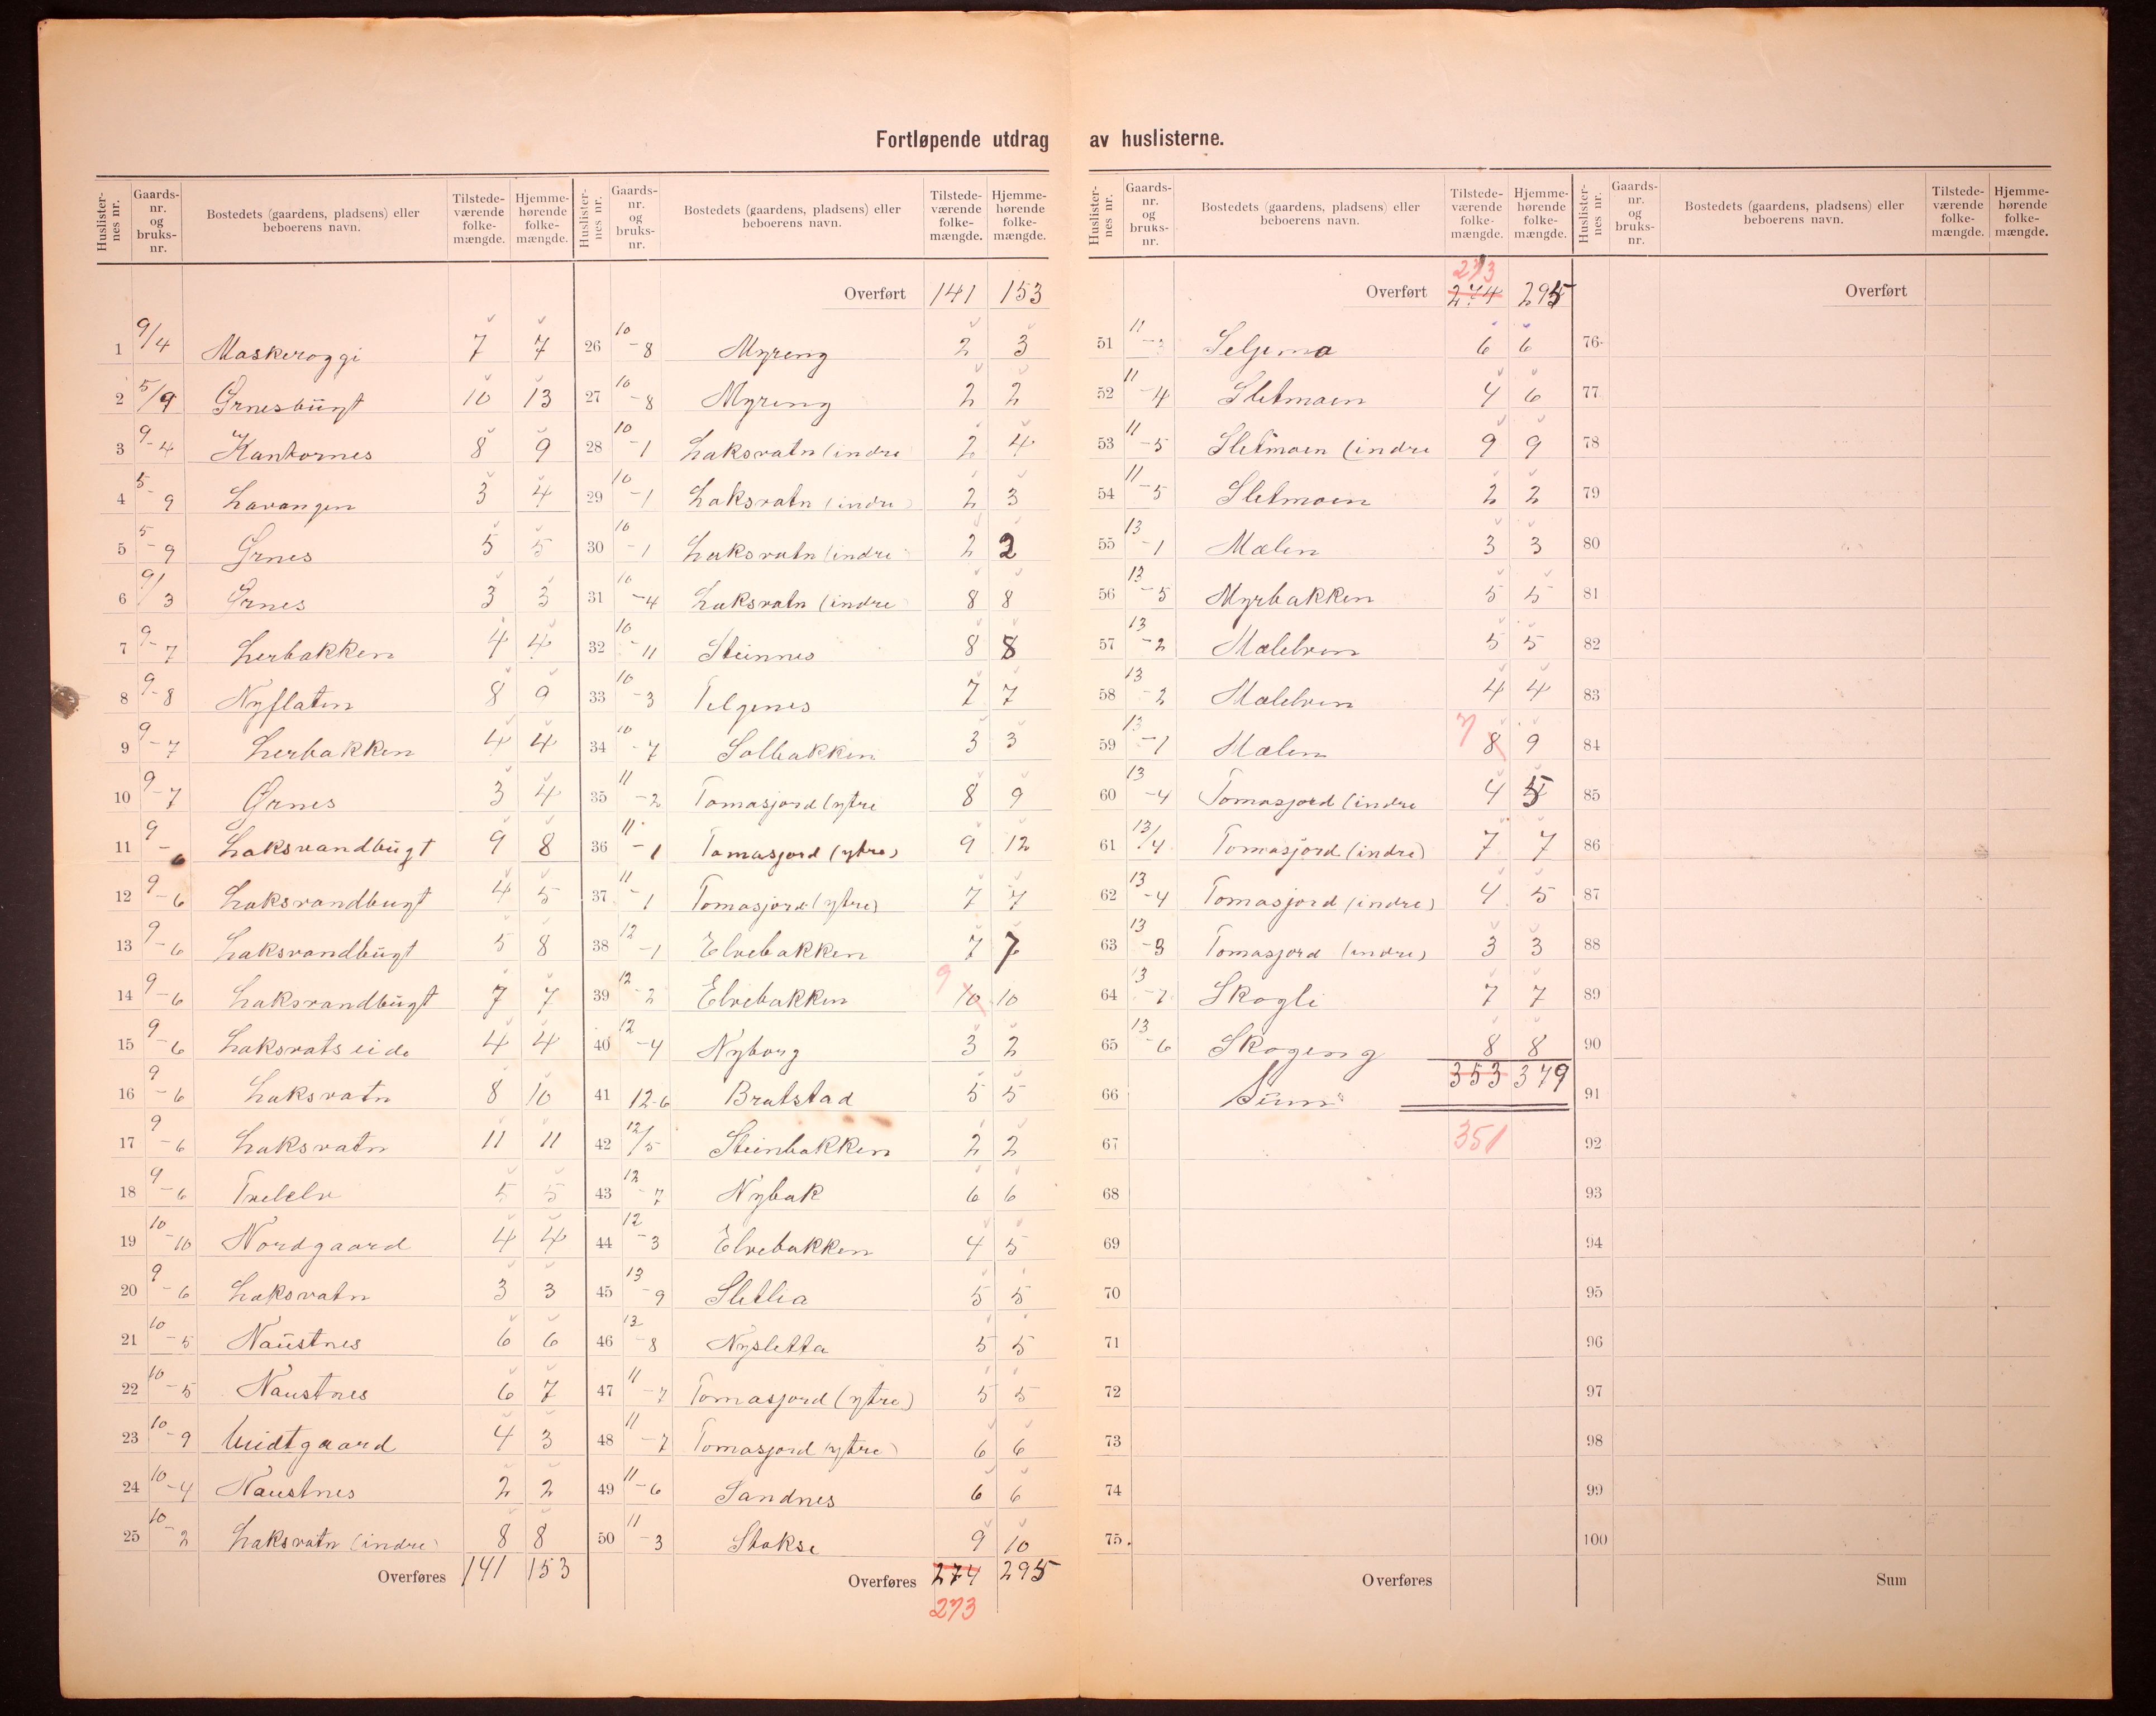 Fortløpende utdrag av huslisterne.
Huslisternes nr. Gaards-nr. og bruks-nr. Bostedets (gaardens, pladsens) eller beboerens navn. Tilstedeværende folkemængde. Hjemmehørende folkemængde.
1 9/4 Maskeroggi 7 7
2 5/9 Grnesbügt 10 13
3 9-4 Kantornes 8 9
4 5-9 Lavangen 3 4
5 5-9 Grnes 5 5
6 9/3 Grnes 3 3
7 9-7 Lerbakken 4 4
8 9-8 Nyflaten 8 9
9 9-7 Lerbakken 4 4
10 9-7 Grnes 3 4
11 9-6 Laksvandbügt 9 8
12 9-6 Laksvandbugt 4 5
13 9-6 Laksvandbügt 5 8
14 9-6 Laksvandbügt 7 7
15 9-6 Laksvatseide 4 4
16 9-6 Laksvatn 8 10
17 9-6 Laksvatn 11 11
18 9-6 Trelelv 5 5
19 10-10 Nordgaard 4 4
20 9-6 Laksvatn 3 3
21 10-5 Naüstnes 6 6
22 10-5 Naustnes 6 7
23 10-9 Midtgaard 4 3
24 10-4 Naustnes 2 2
25 10-2 Laksvatn (indre) 8 8
Overføres 141 153
Huslisternes nr. Gaards-nr. og bruks-nr. Bostedets (gaardens, pladsens) eller beboerens navn. Tilstedeværende folkemængde. Hjemmehørende folkemængde.
Overført 141 153
26 10-8 Myreng 2 3
27 10-8 Myreng 2 2
28 10-1 Laksvatn (indre 2 4
29 10-1 Laksvatn (indre) 2 3
30 10-1 Laksvatn (indre 2 2
31 10-4 Laksvatn (indre 8 8
32 10-11 Steinnes 8 8
33 10-3 Selgenes 7 7
34 10-7 Solbakken 3 3
35 11-2 Tomasjord (ytre 8 9
36 11-1 Tomasjord (ytre) 9 12
37 11-1 Tomasjord (ytre) 7 7
38 12-1 Elvebakken 7 7
39 12-2 Elvebakken 9 10 10
40 12-4 Nyborg 3 2
41 12-6 Bratstad 5 5
42 12/5 Steinbakken 2 2
43 12-7 Nybak 6 6
44 12-3 Elvebakken 4 5
45 13-9 Sletlia 5 5
46 13-8 Nysletta 5 5
47 11-7 Tomasjord (ytre) 5 5
48 11-7 Tomasjord (ytre) 6 6
49 11-6 Sandnes 6 6
50 11-3 Stakse 9 10
Overføres 274 295
273
Huslisternes nr. Gaards-nr. og bruks-nr. Bostedets (gaardens, pladsens) eller beboerens navn. Tilstedeværende folkemængde. Hjemmehørende folkemængde.
273
Overført 274 295
51 11-3 Seljemo 6 6
52 11-4 Sletmoen 4 6
53 11-5 Sletmoen (indre 9 9
54 11-5 Sletmoen 2 2
55 13-1 Mælen 3 3
56 13-5 Myrbakken 5 5
57 13-2 Mælelven 5 5
58 13-2 Mælelven 4 4
59 13-1 Mælen 7 8 9
60 13-4 Tomasjord (indre 4 5
61 13/4 Tomasjord (indre) 7 7
62 13-4 Tomasjord (indre) 4 5
63 13-3 Tomasjord (indre) 3 3
64 13-7 Skogli 7 7
65 13-6 Skogeng 8 8
66 Süm 353 379
67 351
68
69
70
71
72
73
74
75
Overføres
Huslisternes nr. Gaards-nr. og bruks-nr. Bostedets (gaardens, pladsens) eller beboerens navn. Tilstedeværende folkemængde. Hjemmehørende folkemængde.
Overført
76
77
78
79
80
81
82
83
84
85
86
87
88
89
90
91
92
93
94
95
96
97
98
99
100
Sum